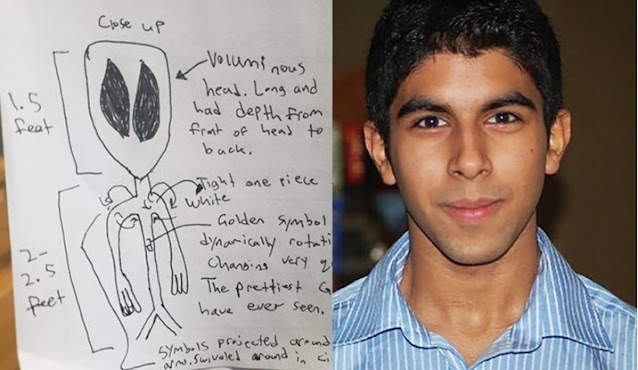 Close up
Voluminous
head. Long and
had depth from
front of head to
back.
1.5
feet
Tight one piece
white
Golden symbol
dynamically rotati
Changing very q
The prettiest G
have ever seen.
2-
2.5
feet
Symbols projected around
arm. Swiveled around in ci